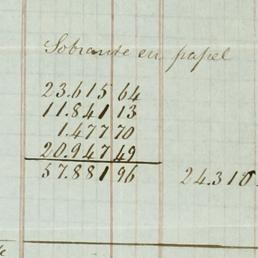 Sobrante en papel
23.615 64
11.841 13
1.477 70
20.947 49
57.881 96 24.310